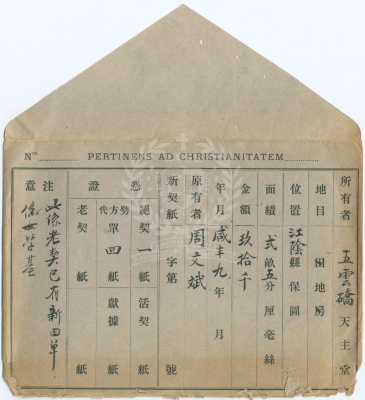 Nº PERTINENS AD CHRISTIANITATEM
所有者 五雲礄 天主堂
地目 田 地 房
位置 江陰縣 保 圖
面績 弍畝 五分 厘 毫 絲
金額 玖拾千
年月 咸丰九年 月
原有者 周文斌
新契紙 字第 號
憑證 絕契 一紙 活契 紙
勞方代單 四紙 獻據 紙
老契 紙
注意 此係老契已有新田單
後世草基